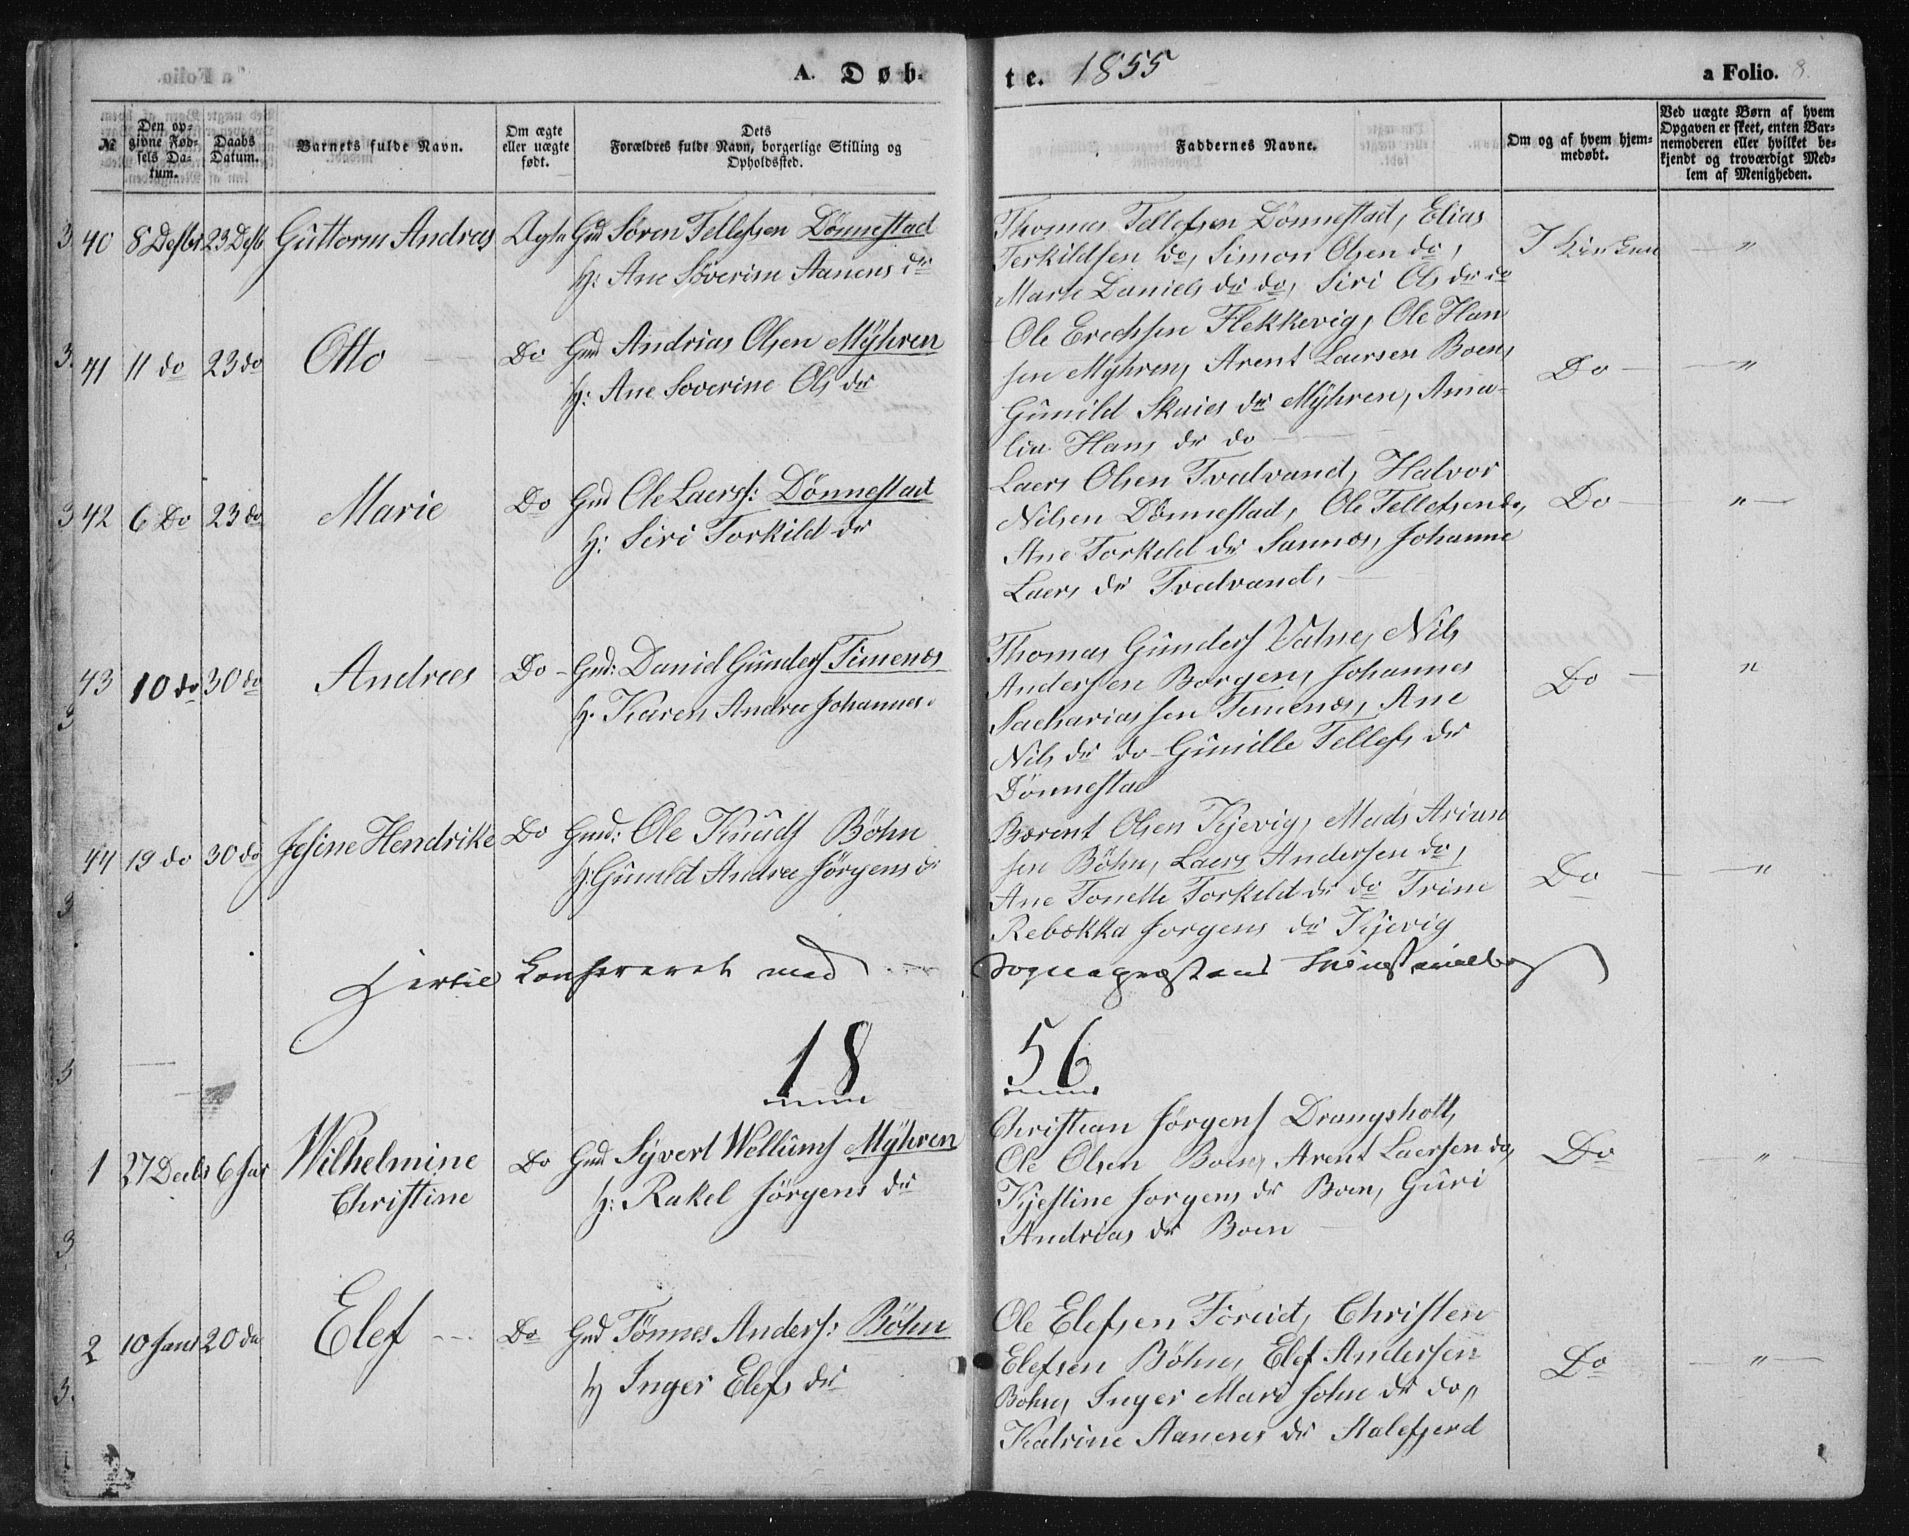 A. Døb-
te. 1855
a Folio. 8.
№
Den op-
givne Fød-
sels Da-
tum.
Daabs
Datum.
Barnets fulde Navn.
Om ægte
eller uægte
født.
Dets
Forældres fulde Navn, borgerlige Stilling og
Opholdssted.
Faddernes Navne.
Om og af hvem hjem-
medøbt.
Ved uægte Børn af hvem
Opgaven er skeet, enten Bar-
nemoderen eller hvilket be-
kjendt og troværdigt Med-
lem af Menigheden.
40 8 Desbr 23 Desb Guttorm Andreas Ægte Gmd Søren Tellefsen Dønnestad
H: Ane Søverine Aanens dr
Thomas Tellefsen Dønnestad, Elias
Terkildsen do, Simon Olsen do,
Marte Daniels dr do, Siri Ols dr do
I Kirken "
41 11 do 23 do Otto Do Gmd Andrias Olsen Mÿhren
H: Ane Soverine Ols dr
Ole Erechsen Flekkevig, Ole Han
sen Myhren, Arent Laersen Boen,
Gunild Skaies dr Mÿhren, Ama-
lia Hans dr do
Do "
42 6 Do 23 do Marie Do Gmd Ole Laerss: Dønnestad
H: Siri Torkild dr
Laers Olsen Tvedvand, Halvor
Nilsen Dønnestad, Ole Tellefsen do,
Ane Torkild dr Sannes, Johanne
Laers dr Tvedvand,
Do "
43 10 do 30 do Andreas Do Gmd: Daniel Gunders Timenes
H. Karen Andrea Johannes
Thomas Gunders Valne, Nils
Andersen Borgen, Johannes
Sachariassen Timenes, Ane
Nils dr do Gunille Tellefs dr
Dønnestad
Do "
44 19 do 30 do Jesine Hendrike Do Gmd: Ole Knuds Bøhn
H: Gunild Andrea Jørgens dr
Bærent Olsen Kjevig, Mads Arian
sen Bøhn, Laers Andersen do,
Ane Tonette Torkild dr do Trine
Rebekka Jorgens dr Kjevig
Do "
Hertil Konfereret med Sognepræstens Ministerialbog
18
56
1 27 Decbr 6 Jar Wilhelmine
Christine
Do Gmd Sÿvert Wellums Mÿhren
H: Rakel Jørgens dr
Christian Jørgens Drangsholt,
Ole Olsen Boen, Arent Laersen do,
Kjestine Jorgens dr Boen, Guri
Andrias dr Boen
Do "
2 10 Janr 20 do Elef Do Gmd Tønnes Anders: Bøhn
H Inger Elefs dr
Ole Elefsen Foreid, Christen
Elefsen Bøhn, Elef Andersen
Bohn, Inger Mari John dr do,
Katrine Aanenes dr Aalefjerd
Do "